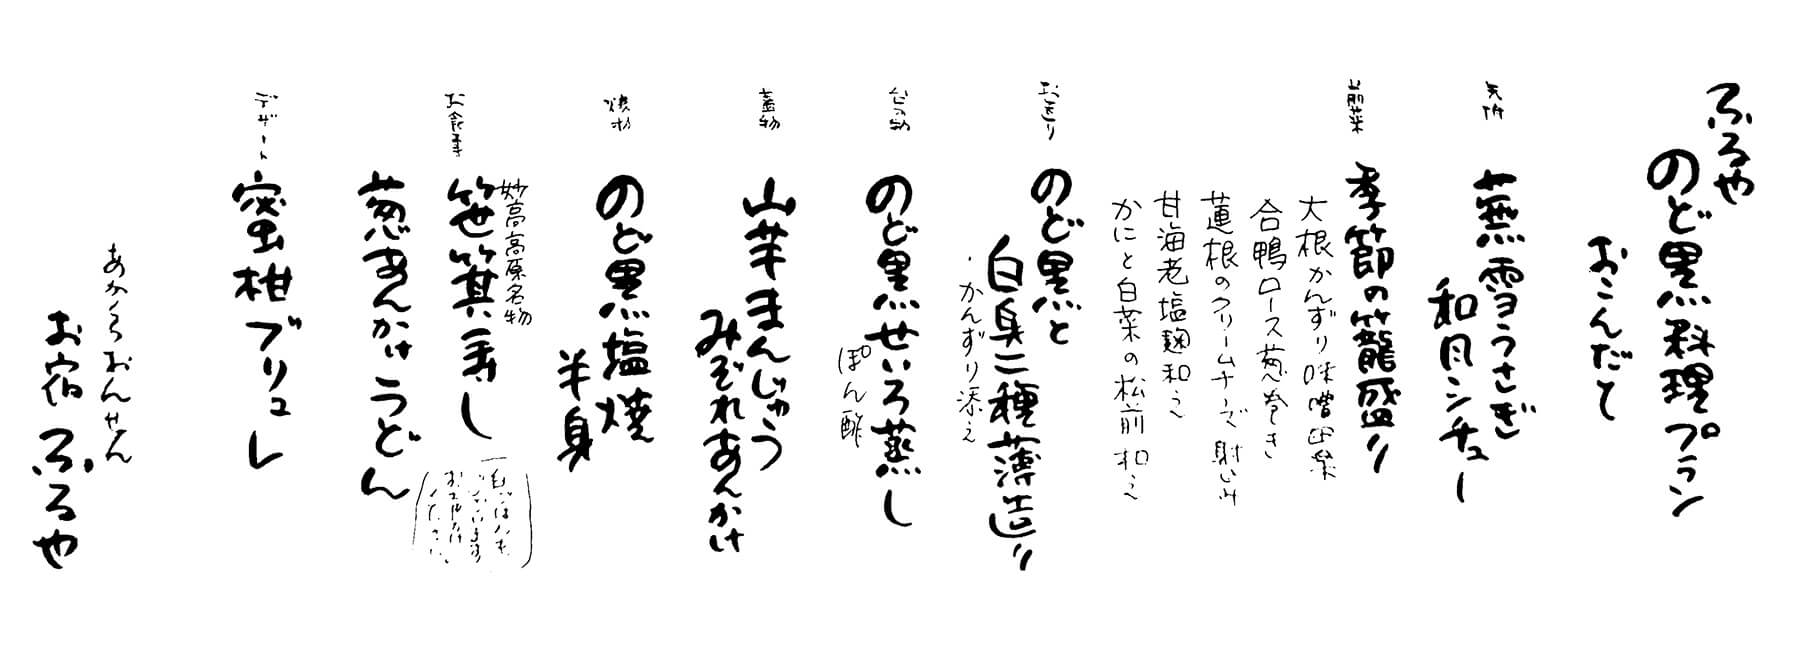 ふるや
のど黒料理プラン
おこんだて
先附
蕪雪うさぎ
和風シチュー
前菜
季節の籠盛り
大根かんずり味噌田楽
合鴨ロース葱巻き
蓮根のクリームチーズ射込み
甘海老塩麹和え
かにと白菜の松前和え
お造り
のど黒と
白身二種薄造り
・かんずり添え
台の物
のど黒せいろ蒸し
ぽん酢
蓋物
山芋まんじゅう
みぞれあんかけ
焼物
のど黒塩焼
半身
お食事
妙高高原名物
笹箕寿し
葱あんかけうどん
デザート
蜜柑ブリュレ
あかくらおんせん
お宿 ふるや